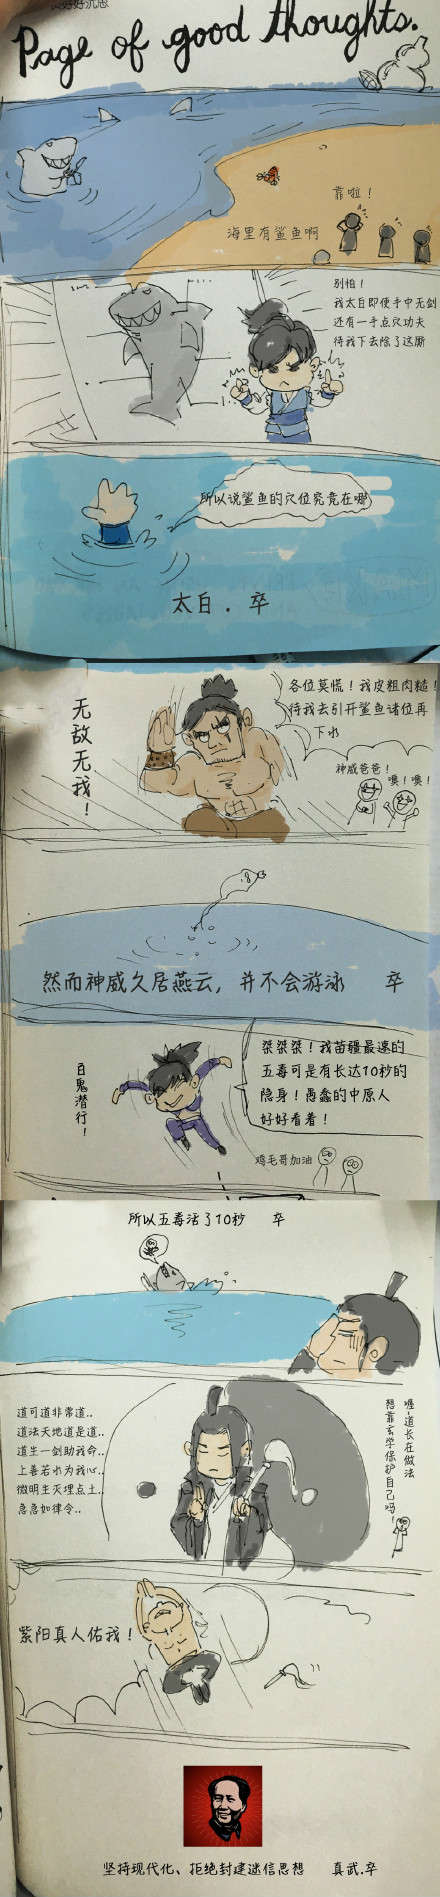 好好沉思
Page of good thoughts.
靠啦！
海里有鲨鱼啊
别怕！
我太白即便手中无剑
还有一手点穴功夫
待我下去除了这厮
所以说鲨鱼的穴位究竟在哪
太白．卒
无敌无我！
各位莫慌！我皮粗肉糙！
待我去引开鲨鱼诸位再
下水
神威爸爸！
噢！噢！
然而神威久居燕云，并不会游泳 卒
百鬼潜行！
桀桀桀！我苗疆最速的
五毒可是有长达10秒的
隐身！愚蠢的中原人
好好看着！
鸡毛哥加油
所以五毒活了10秒 卒
道可道非常道..
道法天地道是道..
道生一剑助我命..
上善若水为我心..
微明生灭埋点土..
急急如律令..
喔·道长在做法
想靠玄学保护自己吗！
紫阳真人佑我！
坚持现代化、拒绝封建迷信思想 真武.卒